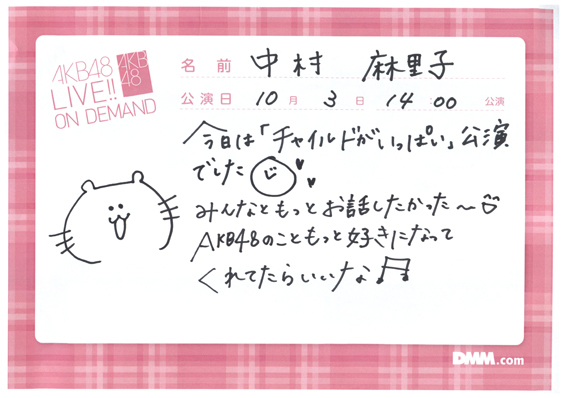 AKB48
LIVE!!
ON DEMAND
AKB
48
名 前 中村 麻里子
公演日 10 月 3 日 14:00 公演
今日は「チャイルドがいっぱい」公演
でした
みんなともっとお話したかった〜
AKB48のこともっと好きになって
くれてたらいいな
DMM.com